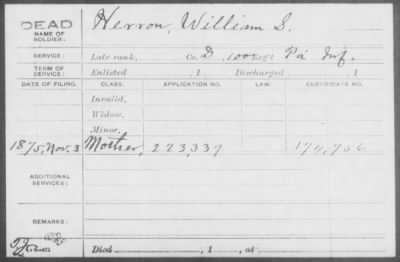 DEAD Herron, William S.
NAME OF SOLDIER:
SERVICE: Late rank, Co. D. 100 Regt Pa Inf.
TERM OF SERVICE: Enlisted , 1 Discharged , 1
DATE OF FILING. CLASS. APPLICATION NO. LAW. CERTIFICATE NO.
Invalid,
Widow,
Minor,
1875, Nov. 3 Mother, 223,339 174,756
ADDITIONAL SERVICES:
REMARKS:
Died , 1 , at